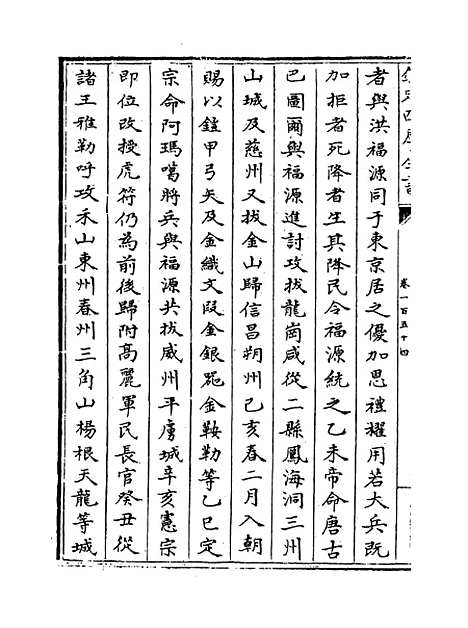 欽定四庫全書
卷一百五十四
者與洪福源同于東京居之優加恩禮擢用若大兵既
加拒者死降者生其降民令福源統之乙未帝命唐古
巴圖爾與福源進討攻拔龍崗咸從二縣鳳海洞三州
山城及慈州又拔金山歸信昌朔州己亥春二月入朝
賜以鎧甲弓矢及金織文段金銀器金鞍勒等乙巳定
宗命阿瑪噶將兵與福源共拔威州平虜城辛亥憲宗
即位改授虎符仍為前後歸附高麗軍民長官癸丑從
諸王雅勒呼攻禾山東州春州三角山楊根天龍等城